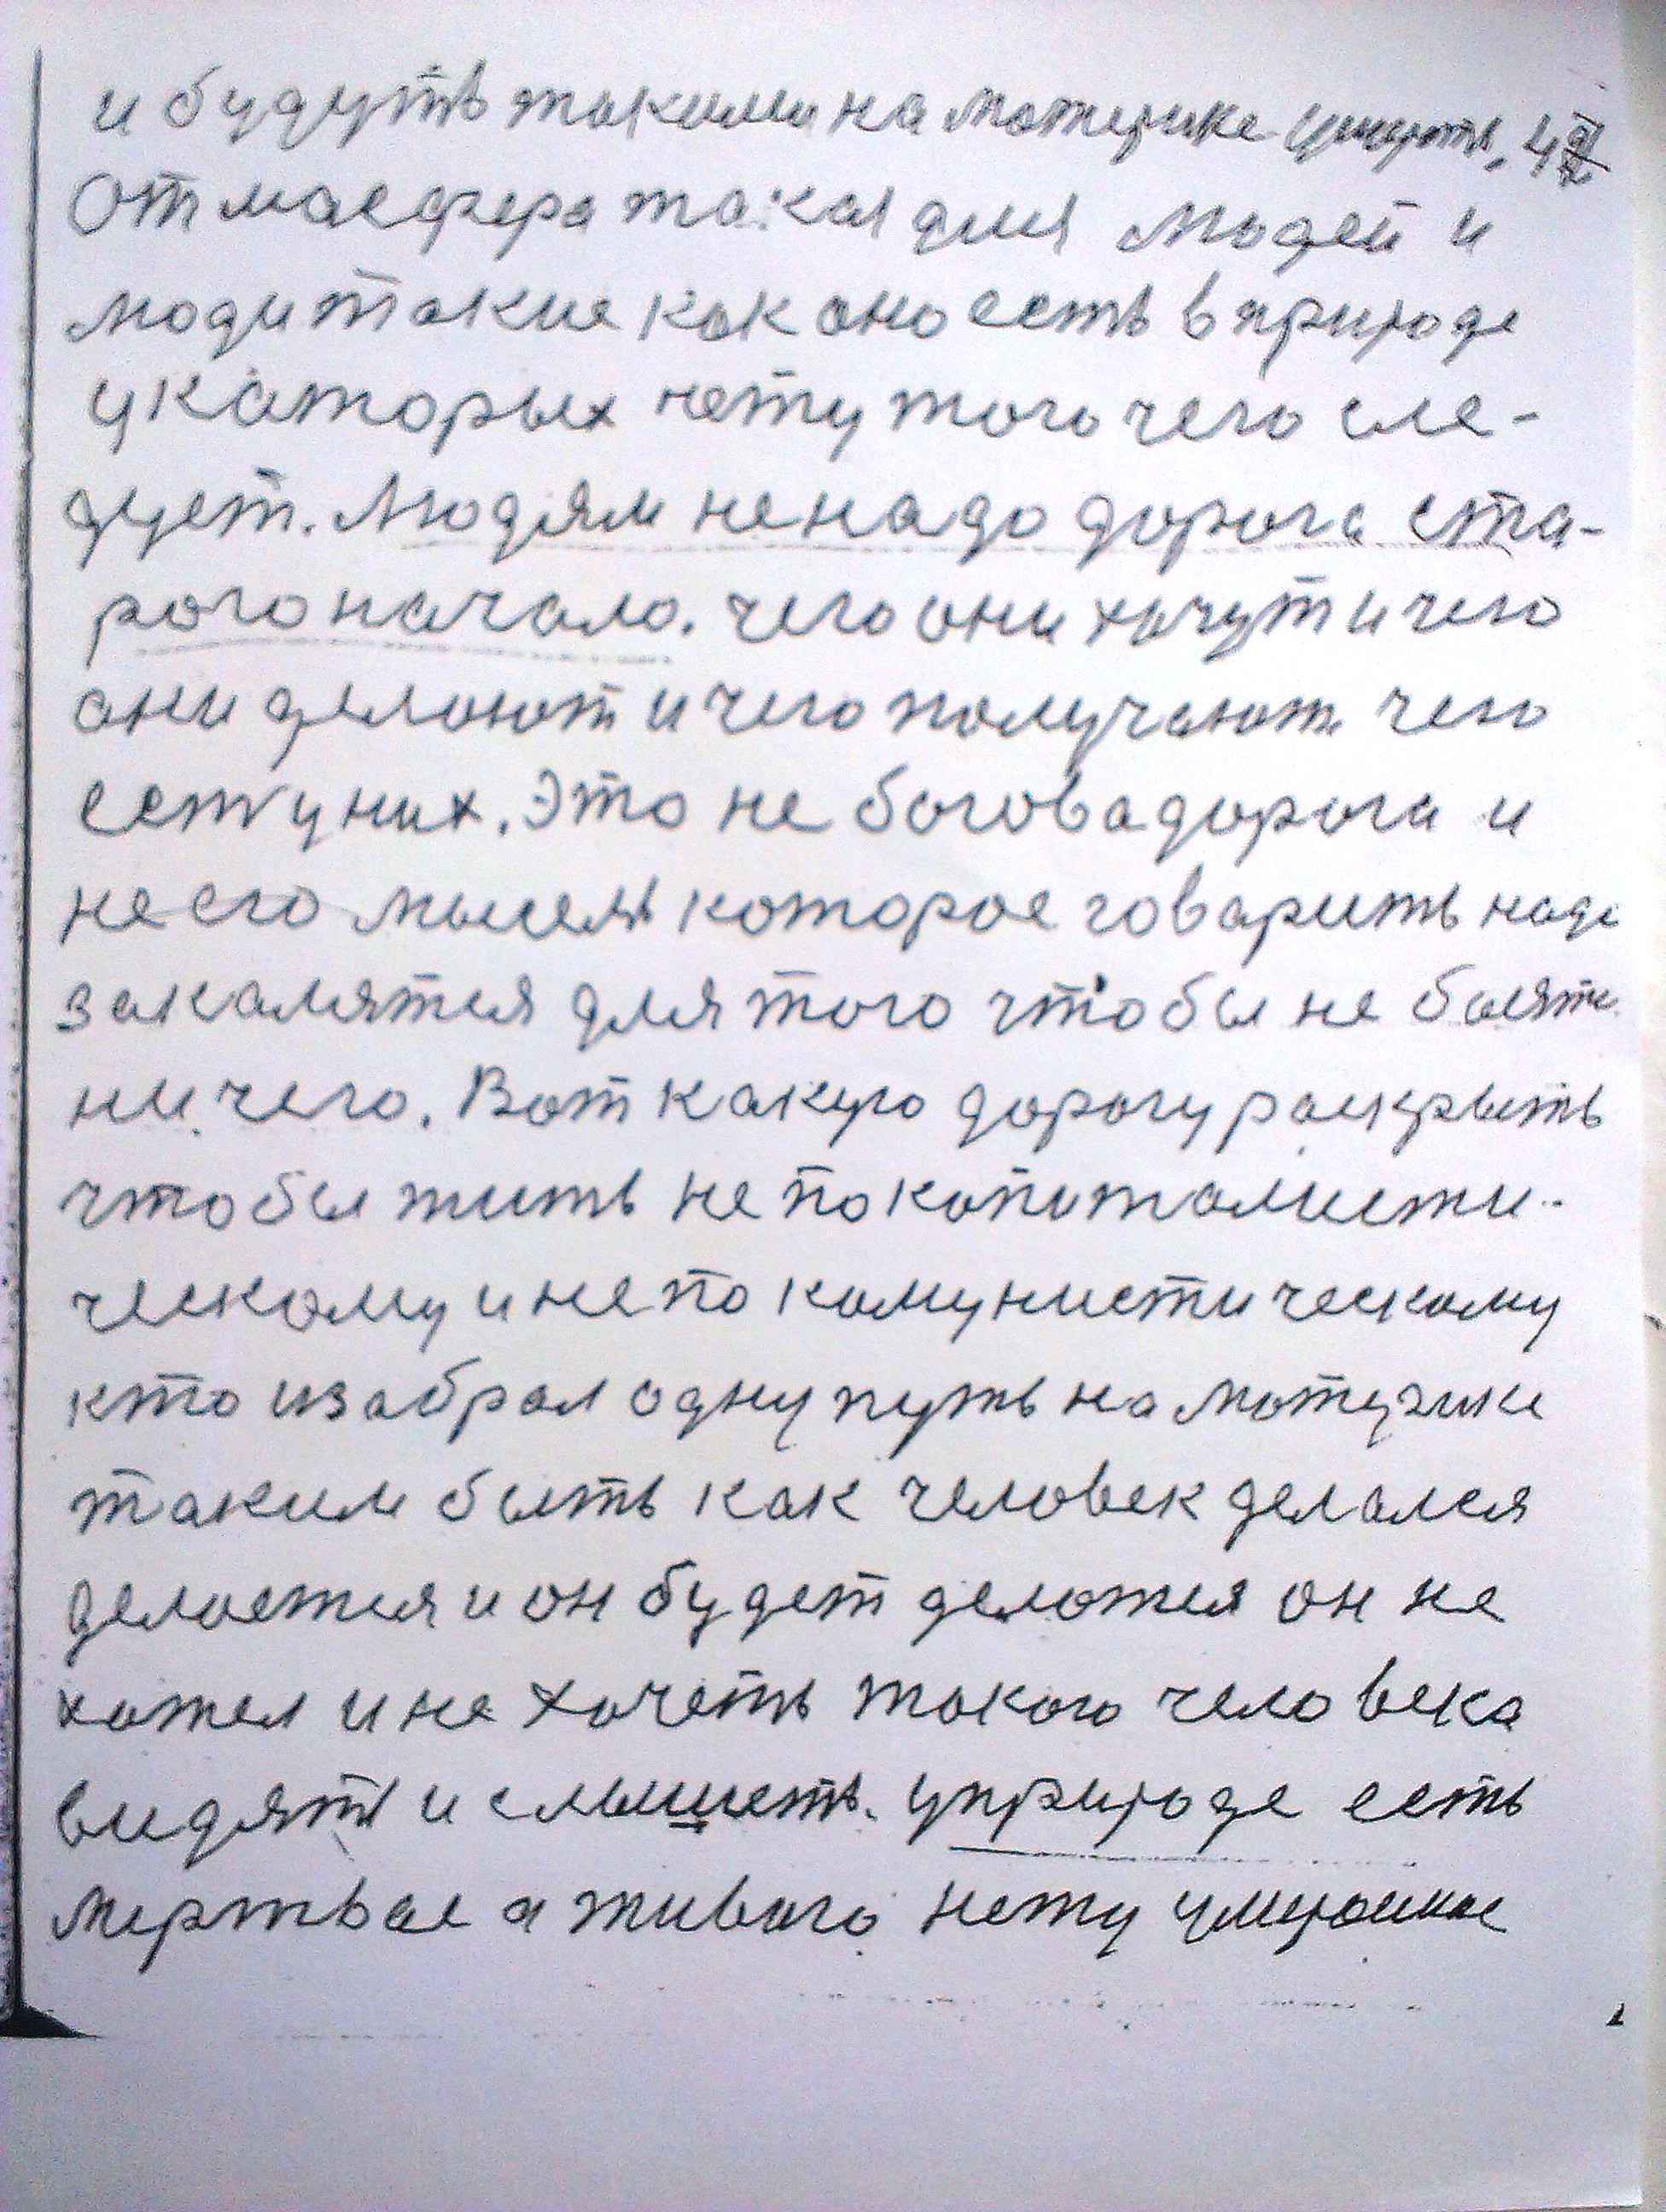 и будуть такими на материке 
Отмасфера такая для людей и
люди такие как оно есть в природе
у каторых нету того чего сле-
дует. Людям ненадо дорога ста-
рого начало. чего они хочут и чего
они делоют и чего получают чего
есть у них. Это не богова дорога и
не его мысель которое говарить надо
закалятся для того чтобы не боятся
ни чего. Вот какую дорогу раскрыть
чтобы жить не по копиталисти-
ческому и не по комунистическому
кто изабрал одну путь на мотерике
таким быть как человек делался
делоется и он будет делотся он не
хотел и не хочеть токого человека
видять и слышеть. у природе есть
мертвое а живого нету умерошое